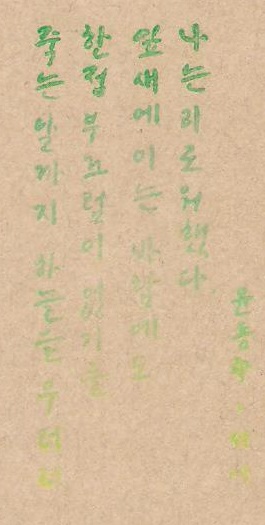 죽는 날까지 하늘을 우러러
한점 부끄럼이 없기를
잎새에 이는 바람에도
나는 괴로워했다.
윤동주 - 서시